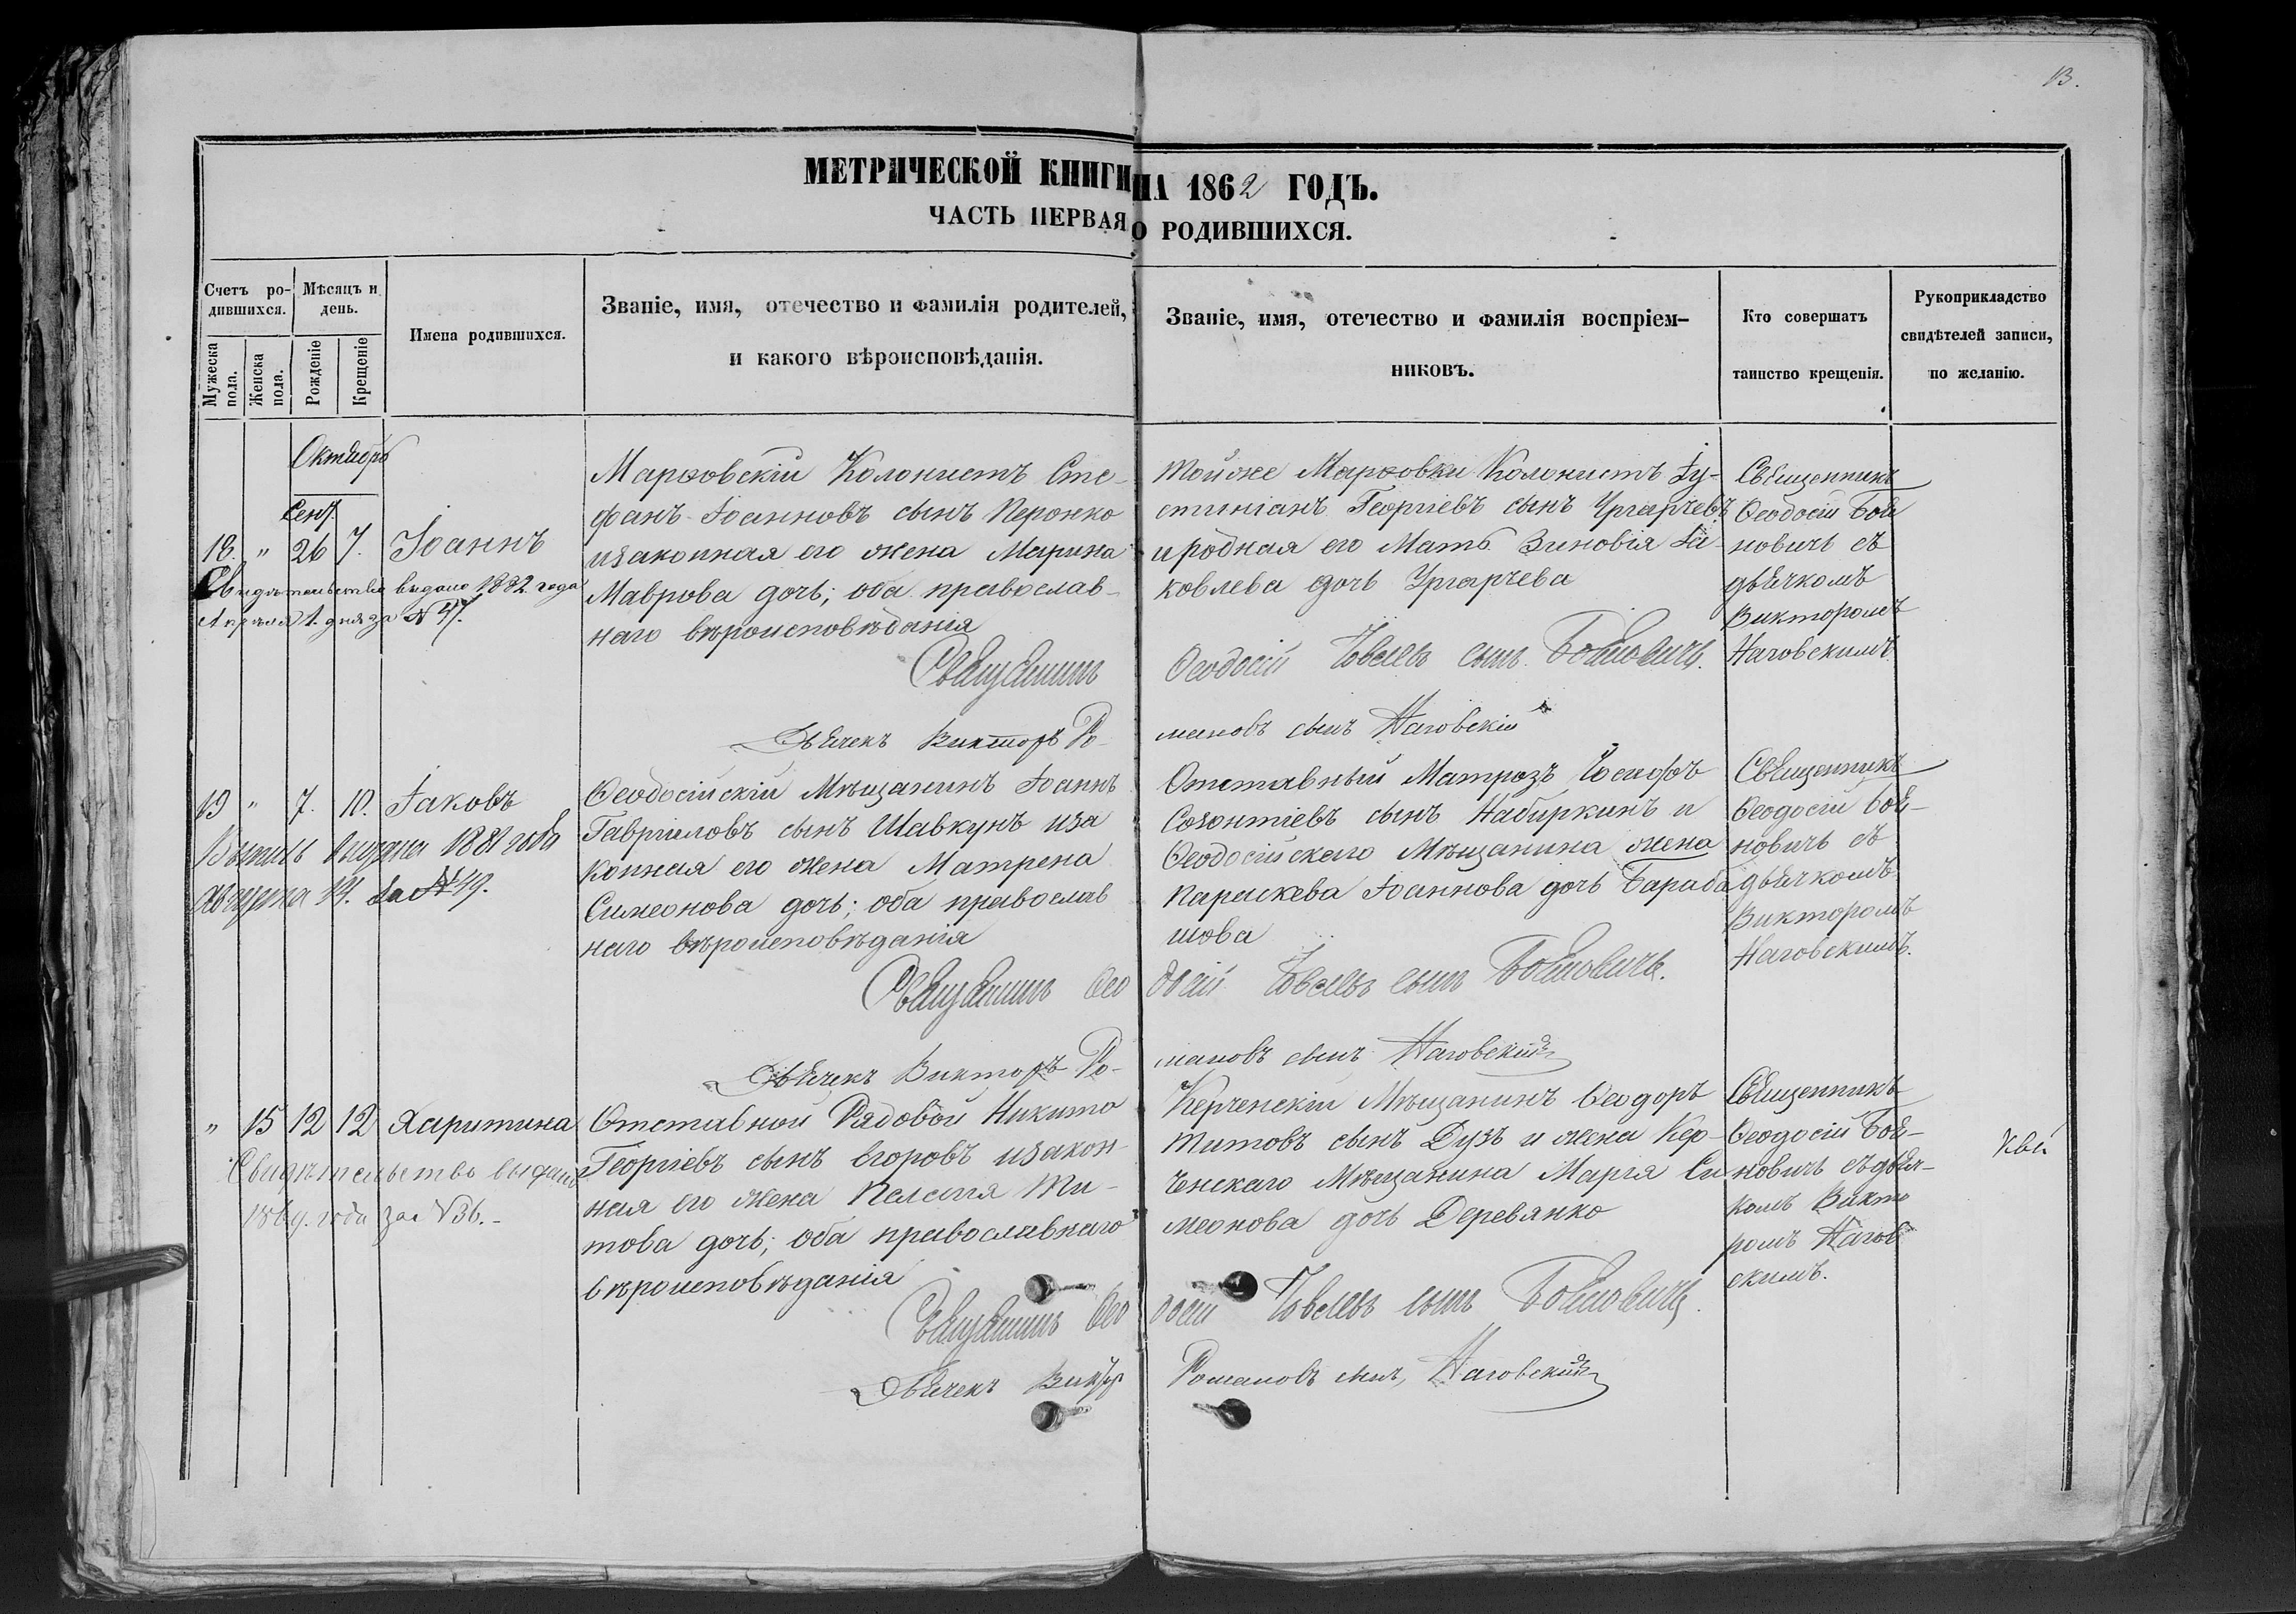 13.
МЕТРИЧЕСКОЙ КНИГИ НА 1862 ГОДЪ.
ЧАСТЬ ПЕРВАЯ О РОДИВШИХСЯ.
Счетъ ро-
дившихся.
Мужеска
пола.
Женска
пола.
Мѣсяцъ и
день.
Рожденіе
Крещеніе
Имена родившихся.
Званіе, имя, отечество и фамилія родителей,
и какого вѣроисповѣданія.
Званіе, имя, отечество и фамилія воспріем-
никовъ.
Кто совершатъ
таинство крещенія.
Рукоприкладство
свидѣтелей записи,
по желанію.
Октябрь
Сент.
18. " 26 7. Іоаннъ
Свидѣтельство выдано 1882 года
Апрѣля 1. дня за № 47.
Марфовскій Колонистъ Сте-
фанъ Іоанновъ сынъ Перонко
изаконная его жена Марина
Маврова дочь; оба православ-
наго вѣроисповѣданія
тойже Марфовки Колонистъ Іу-
стиніанъ Георгіевъ сынъ
и родная его Мать Зиновія Іа-
ковлева дочь
Священникъ
Ѳеодосій Бое
новичъ съ
дьячкомъ
Викторомъ
Наговскимъ
Священникъ Ѳеодосій Іовлевъ сынъ Боеновичъ.
Дьячекъ Викторъ Ро-
мановъ сынъ Наговскій
19 " 7. 10. Іаковъ
Выпись выдана 1881 года
Августа 14. за № 49.
Ѳеодосійскій Мѣщанинъ Іоаннъ
Гавріиловъ сынъ Шавкунъ иза
конная его жена Матрена
Симеонова дочь; оба православ
наго вѣроисповѣданія
Отставный Матрозъ Іосифъ
Созонтіевъ сынъ Набиркинъ и
Ѳеодосійскаго Мѣщанина жена
Параскева Іоаннова дочь Бараба
шова
Священникъ
Ѳеодосій Бое-
новичъ съ
дьячкомъ
Викторомъ
Наговскимъ.
Священникъ Ѳео
досій Іовлевъ сынъ Боеновичъ.
Дьячекъ Викторъ Ро-
мановъ сынъ Наговскій
" 15 12 12 Харитина
Свидѣтельство выдано
1869. года за № 36.-
Отставной Рядовой Никита
Георгіевъ сынъ Егоровъ изакон-
ная его жена Пелагія Ти-
това дочь; оба православнаго
вѣроисповѣданія
Керченскій Мѣщанинъ Ѳеодоръ
Титовъ сынъ Дузъ и жена Кер-
ченскаго Мѣщанина Марія Си
меонова дочь Деревянко
Священникъ
Ѳеодосій Бое-
новичъ съ дьяч-
комъ Викто
ромъ Нагов
скимъ.
Священникъ Ѳео
досій Іовлевъ сынъ Боеновичъ.
Дьячекъ Виктор
Романовъ сынъ, Наговскій